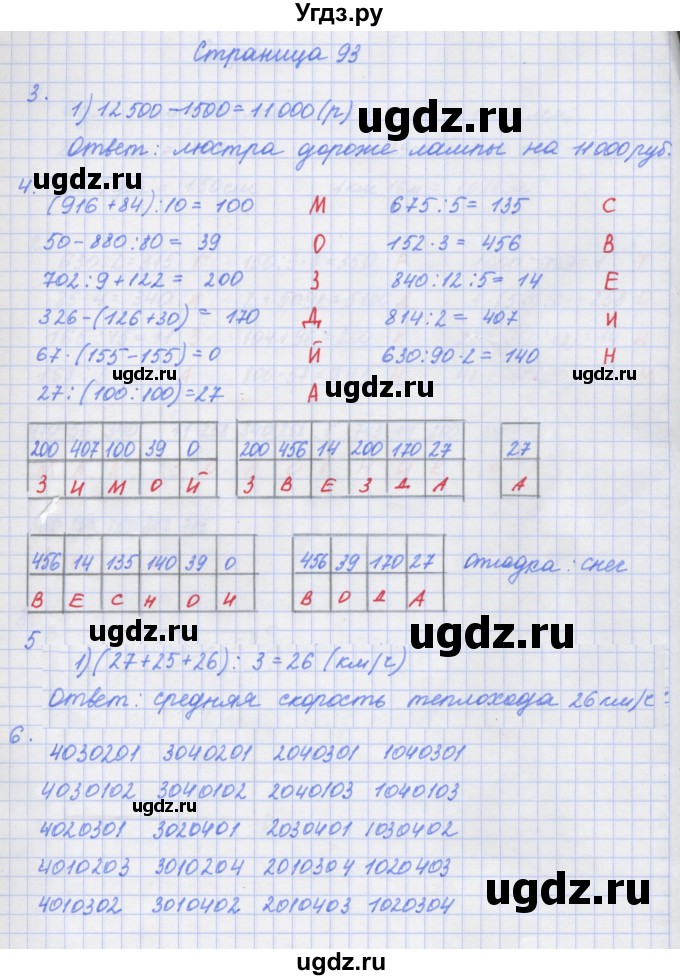 Угдз.ру
Страница 93
ugdz.ru
3.
1) 12500-1500=11000(р)
Ответ: люстра дороже лампы на 11000руб.
4.
(916+84):10= 100 М 675:5= 135 С
50-880:80= 39 О 152·3= 456 В
702:9+122= 200 З 840:12:5= 14 Е
326-(126+30)= 170 Д 814:2= 407 И
67·(155-155)=0 Й 630:90·2=140 Н
ugdz.ru ugdz.ru
27:(100:100)=27 А
200 407 100 39 0 200 456 14 200 170 27 27
З И М О Й З В Е З Д А А
ugdz.ru ugdz.ru
456 14 135 140 39 0 456 39 170 27 Отгадка: снег
В Е С Н О Й В О Д А
5
1)(27+25+26): 3=26 (км/ч)
Ответ: средняя скорость теплохода 26км/ч.
ugdz.ru
6.
4030201 3040201 2040301 1040301
4030102 3040102 2040103 1040103
ugdz.ru
4020301 3020401 2030401 1030402
4010203 3010204 2010304 1020403
4010302 3010402 2010403 1020304
ugdz.ru
ugdz.ru